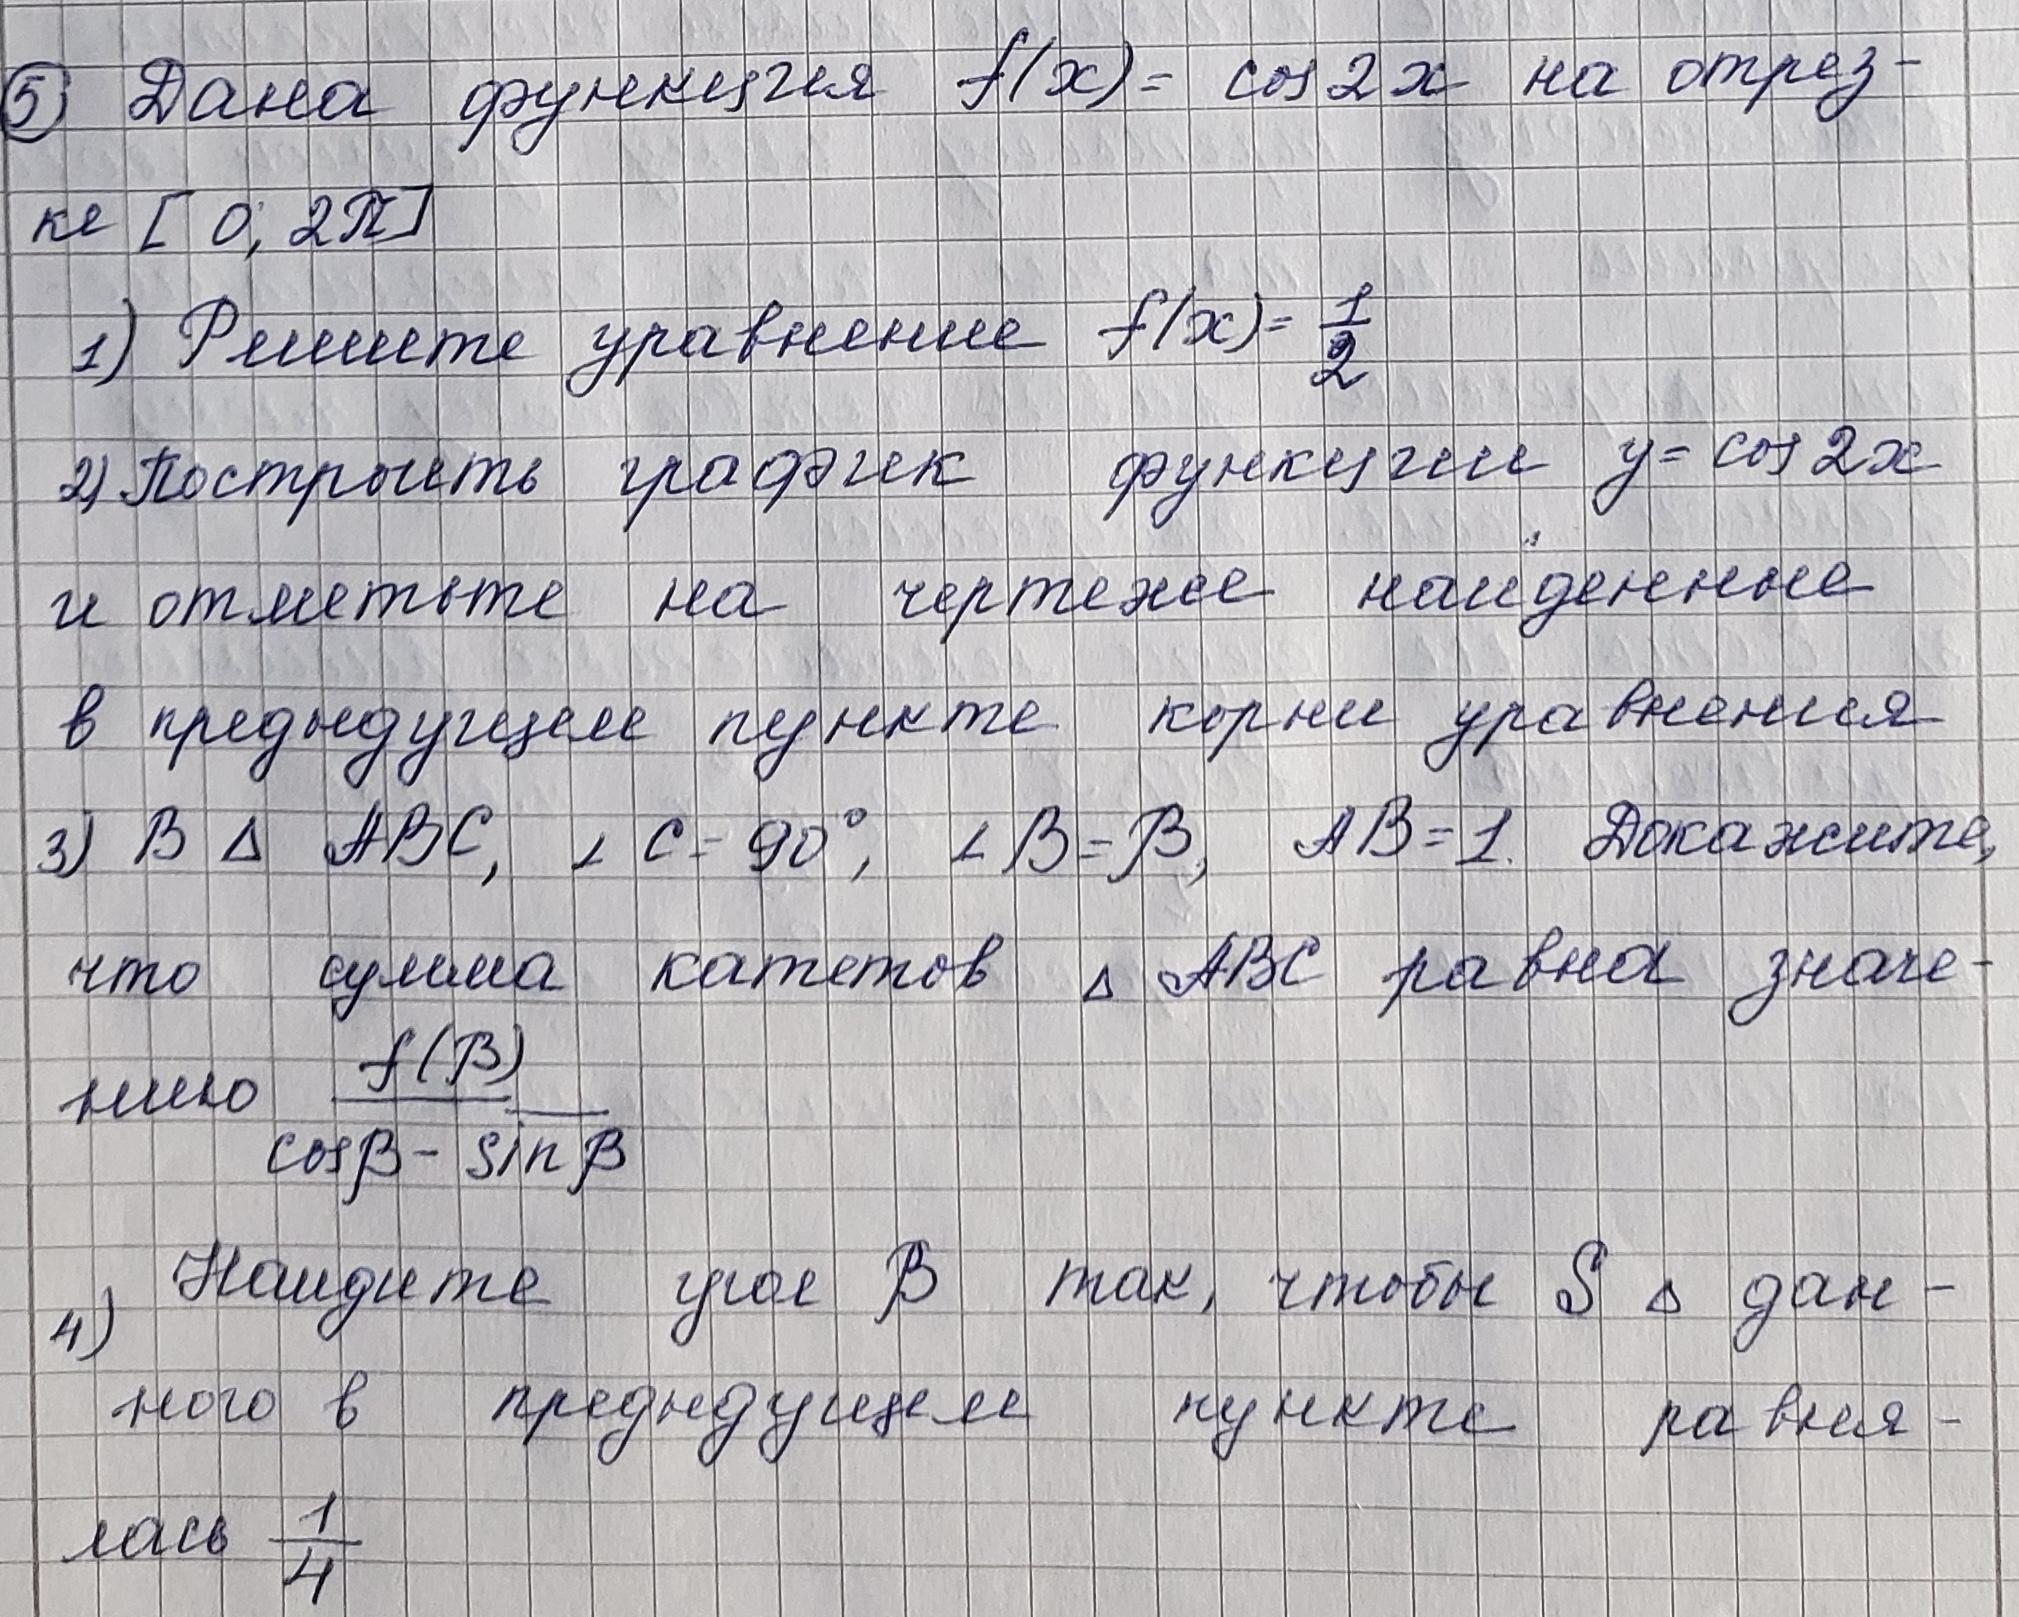 5) Дана функция f(x) = cos 2x на отрез-
ке [0; 2π]
1) Решите уравнение f(x) = 1/2
2) Построить график функции y = cos 2x
и отметьте на чертеже найденные
в предыдущем пункте корни уравнения
3) В △ ABC, ∠ C = 90°, ∠ B = β, AB = 1. Докажите,
что сумма катетов △ ABC равна значе-
нию f(β) / (cos β - sin β)
4) Найдите угол β так, чтобы S △ дан-
ного в предыдущем пункте равня-
лась 1/4